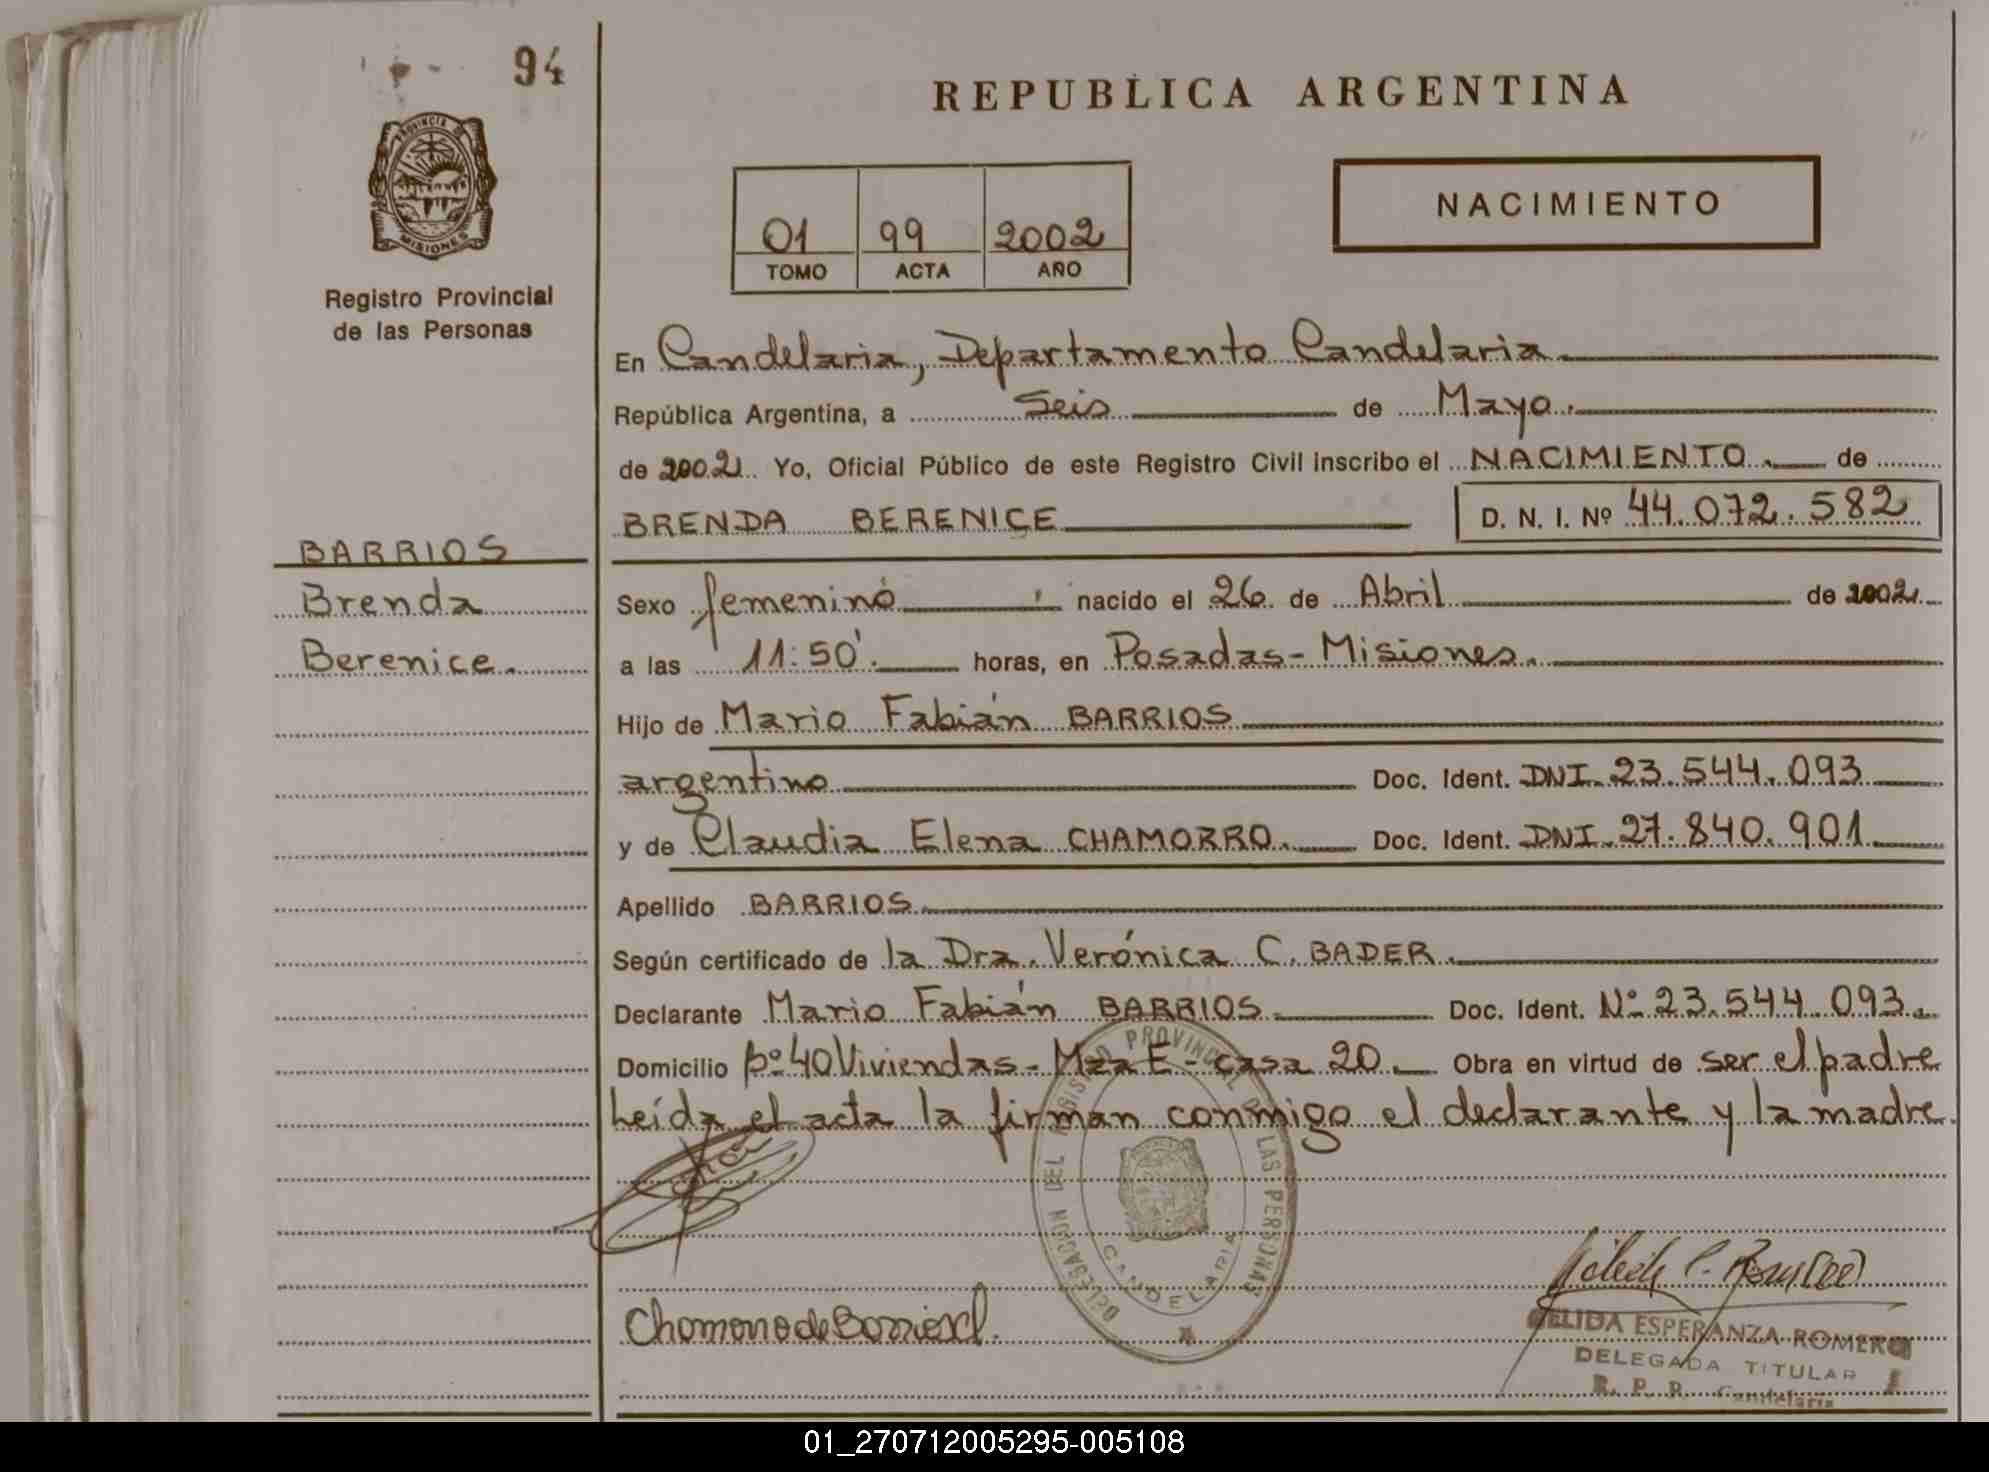 94
PROVINCIA DE
MISIONES
Registro Provincial
de las Personas
BARRIOS
Brenda
Berenice.
REPUBLICA ARGENTINA
01 99 2002
TOMO ACTA AÑO
NACIMIENTO
En Candelaria, Departamento Candelaria.
República Argentina, a Seis de Mayo.
de 2002. Yo, Oficial Público de este Registro Civil inscribo el NACIMIENTO. de
BRENDA BERENICE D. N. I. Nº 44.072.582
Sexo femenino nacido el 26 de Abril de 2002.
a las 11:50'. horas, en Posadas - Misiones.
Hijo de Mario Fabián BARRIOS
argentino Doc. Ident. DNI. 23.544.093
y de Claudia Elena CHAMORRO. Doc. Ident. DNI. 27.840.901
Apellido BARRIOS.
Según certificado de la Dra. Verónica C. BADER.
Declarante Mario Fabián BARRIOS. Doc. Ident. Nº 23.544.093.
Domicilio Bº 40 Viviendas - Mza E - casa 20. Obra en virtud de ser el padre
Leída el acta la firman conmigo el declarante y la madre.
DELEGACION DEL REGISTRO PROVINCIAL DE LAS PERSONAS
CANDELARIA
ESPERANZA ROMERO
DELEGADA TITULAR
R. P. P. Candelaria
01_270712005295-005108